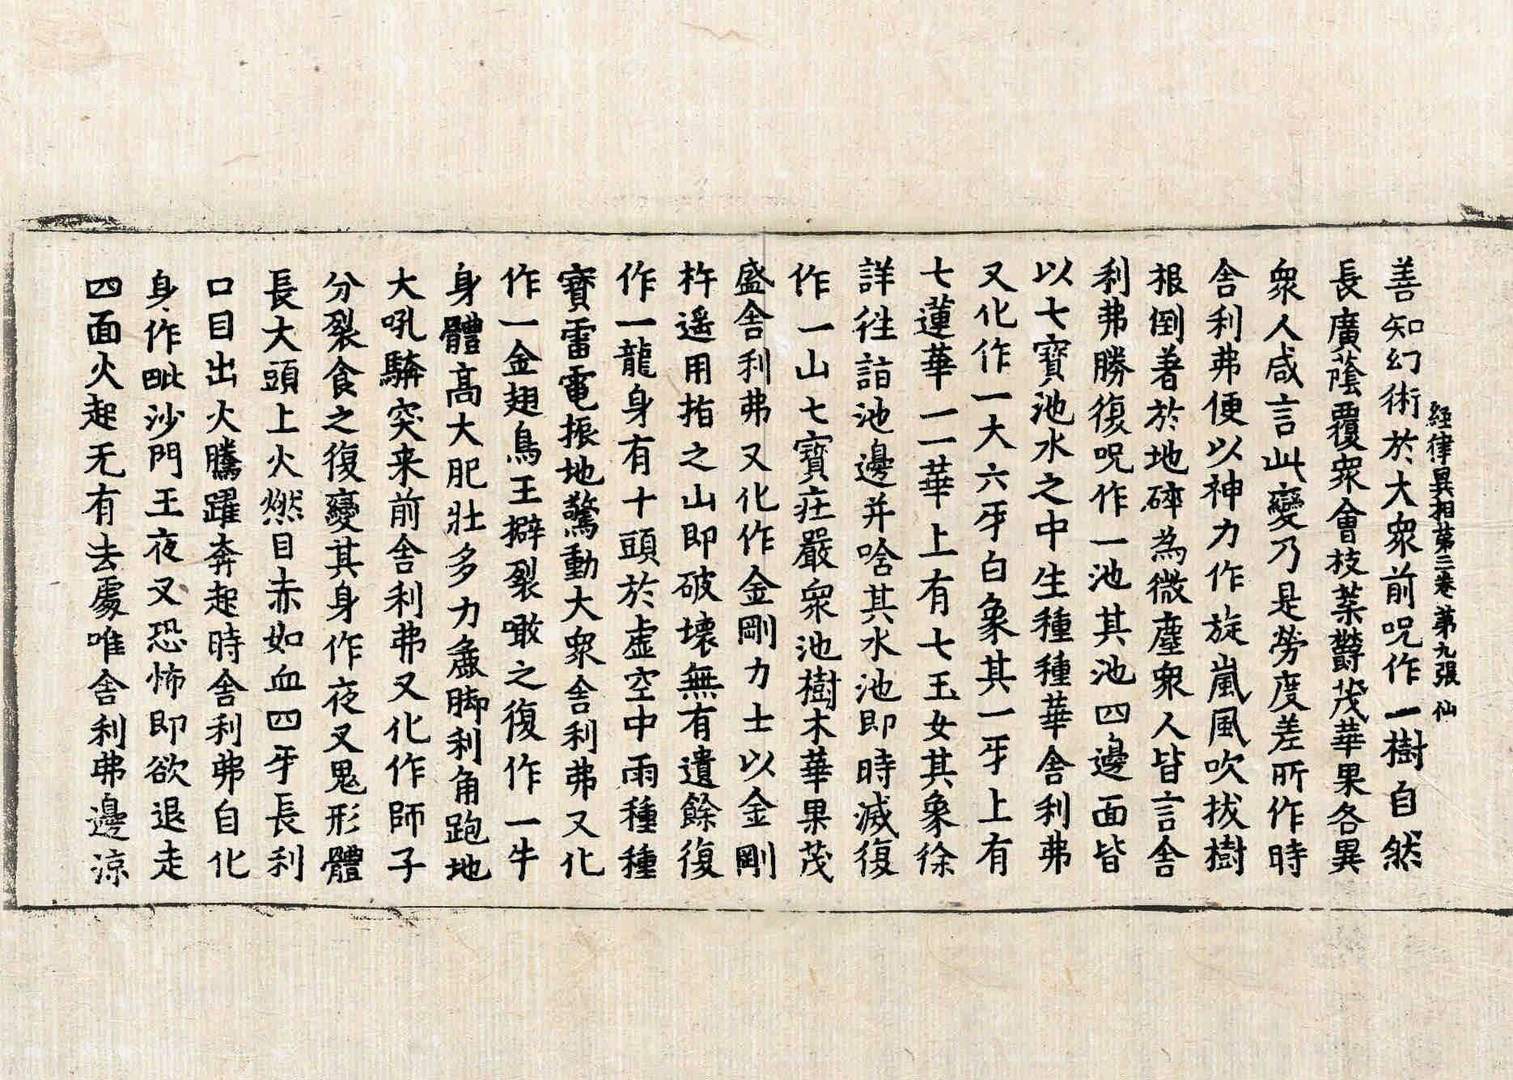 經律異相苐三卷 苐九張 仙
善知幻術於大衆前呪作一樹自然
長廣蔭覆衆會枝葉欝茂華果各異
衆人咸言此變乃是勞度差所作時
舍利弗便以神力作旋嵐風吹拔樹
根倒著於地碎為微塵衆人皆言舍
利弗勝復呪作一池其池四邊面皆
以七寶池水之中生種種華舍利弗
又化作一大六牙白象其一牙上有
七蓮華一一華上有七玉女其象徐
詳往詣池邊并唅其水池即時滅復
作一山七寶莊嚴衆池樹木華果茂
盛舍利弗又化作金剛力士以金剛
杵遙用指之山即破壞無有遺餘復
作一龍身有十頭於虛空中雨種種
寶雷電振地驚動大衆舍利弗又化
作一金翅鳥王擗裂噉之復作一牛
身體高大肥壯多力麁脚利角跑地
大吼騲突来前舍利弗又化作師子
分裂食之復變其身作夜叉鬼形體
長大頭上火燃目赤如血四牙長利
口目出火騰躍奔起時舍利弗自化
身作毗沙門王夜叉恐怖即欲退走
四面火起无有去處唯舍利弗邊涼